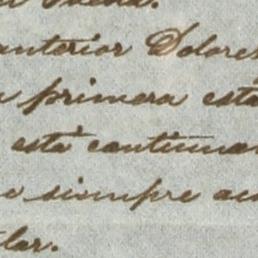 anterior Dolores
primera esta
está continua
siempre
lar.